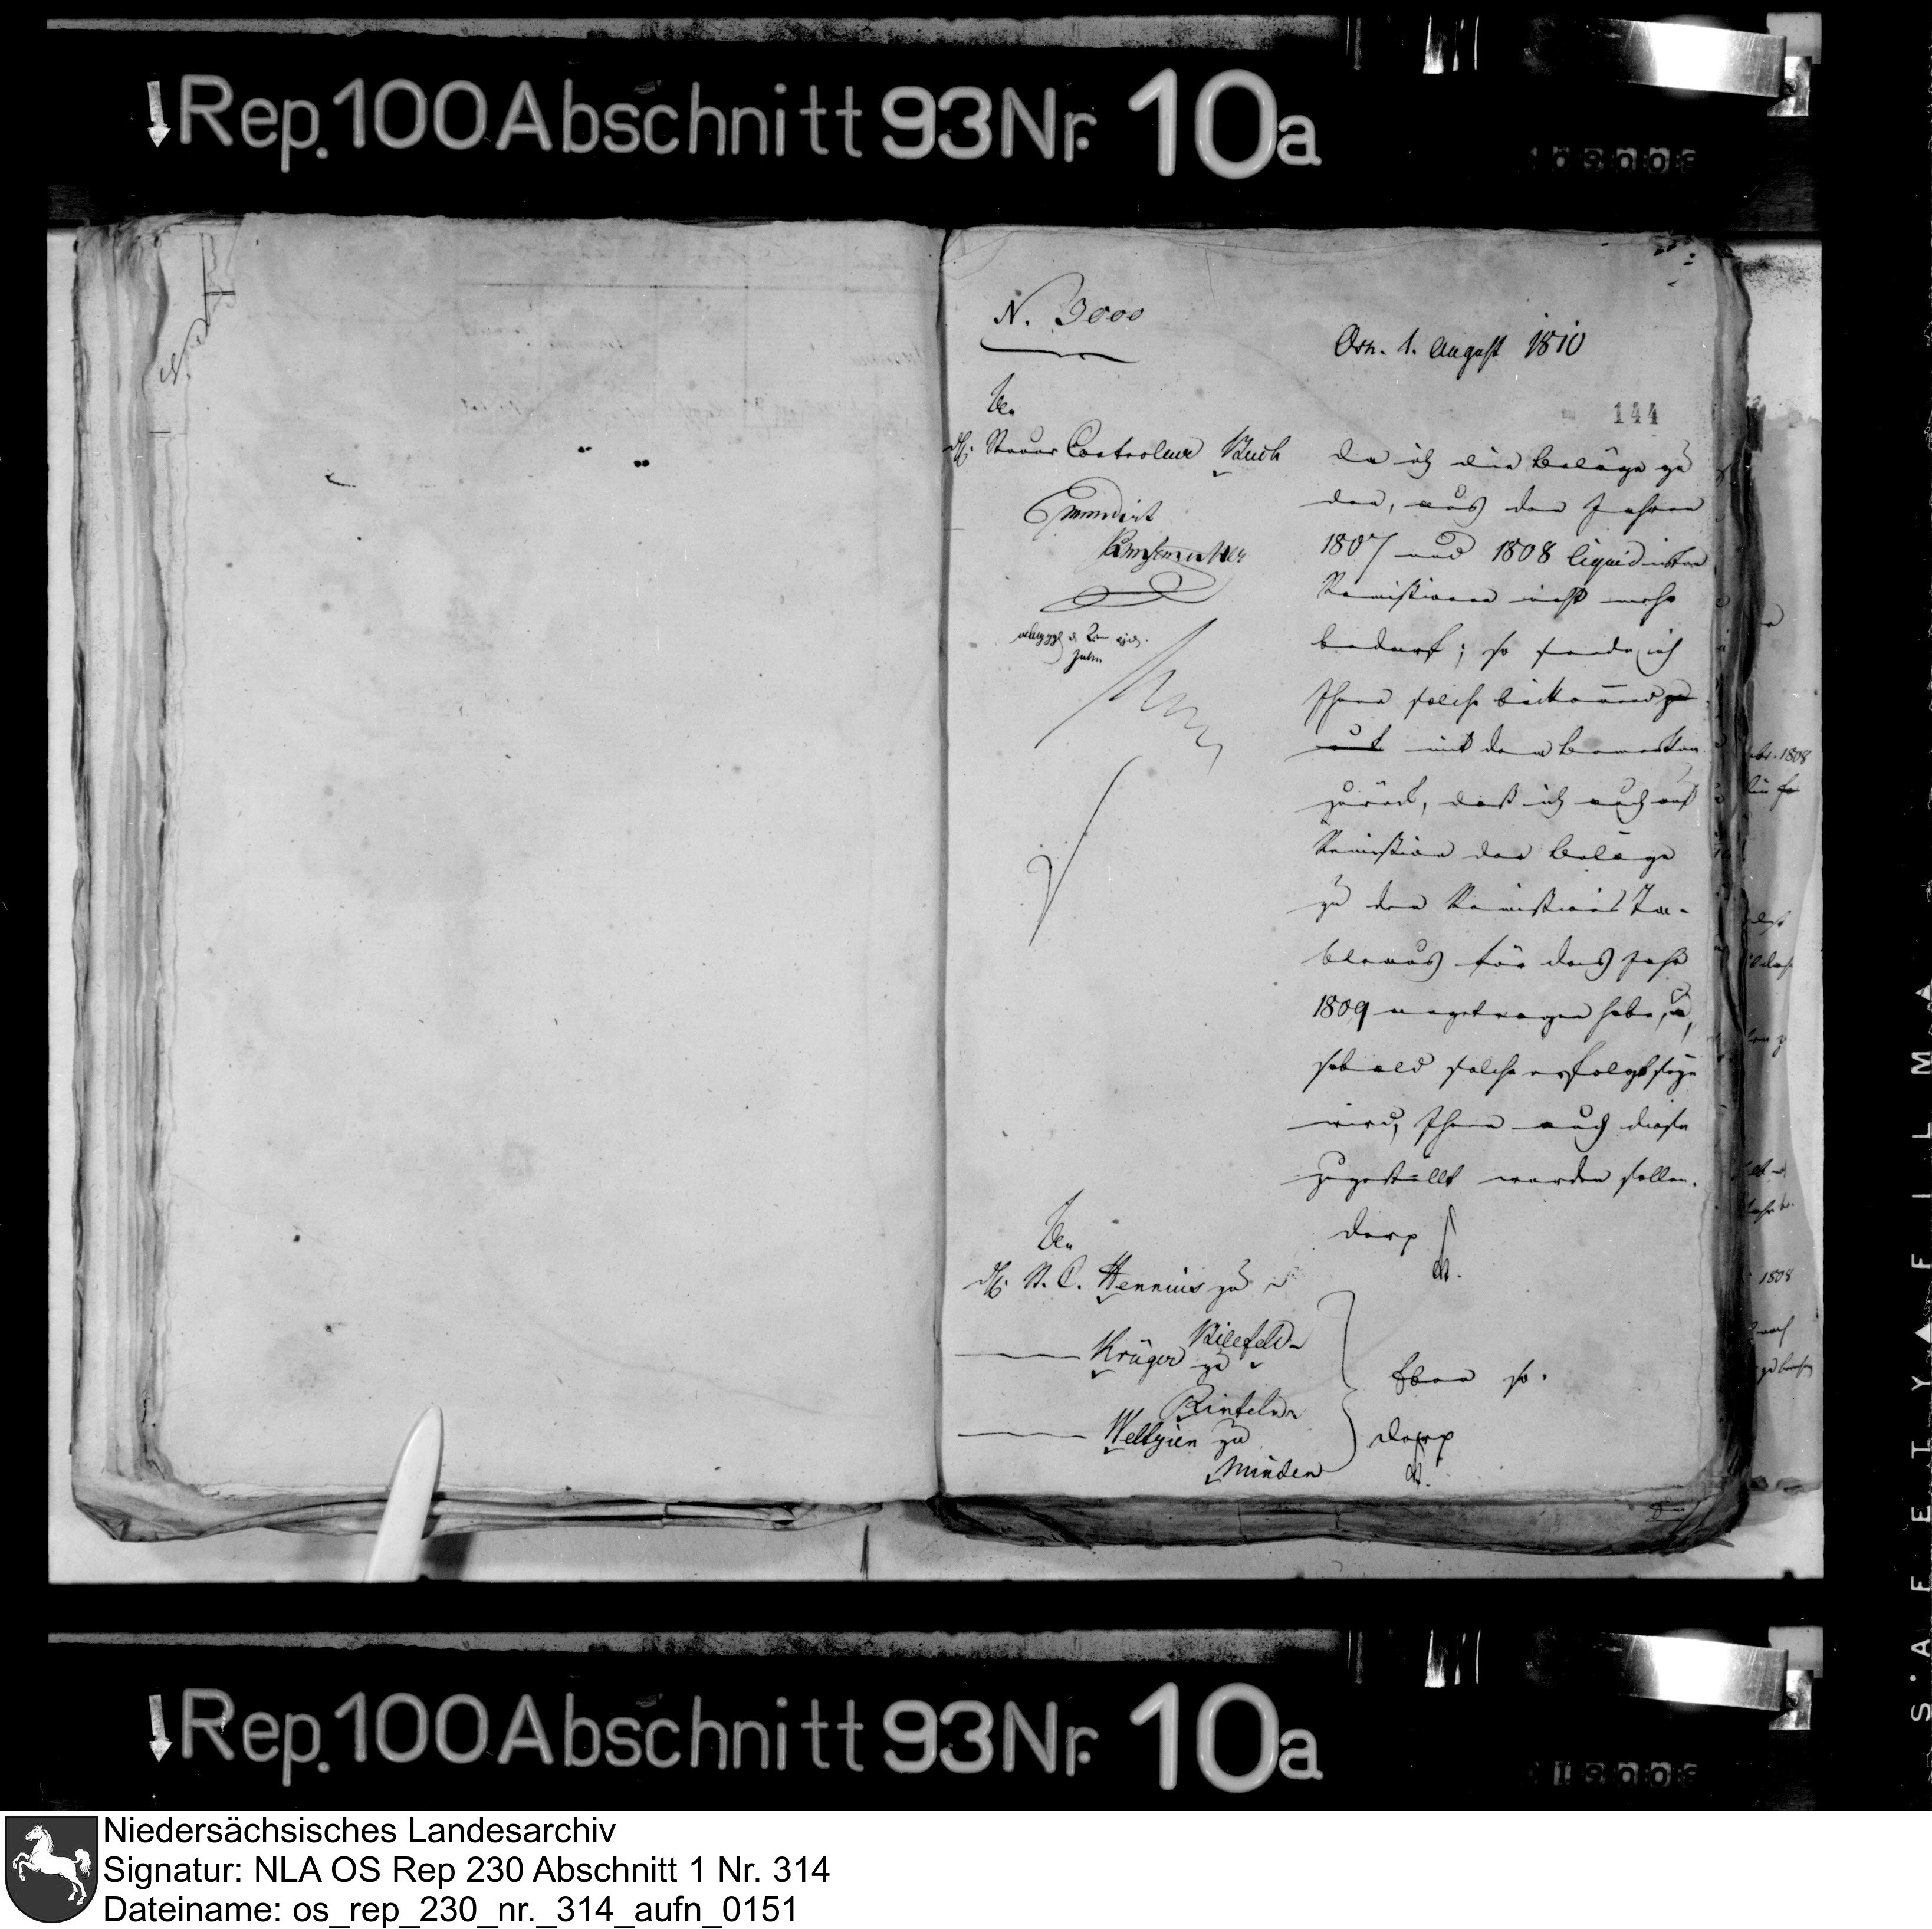 Rep. 100 Abschnitt 93 Nr. 10a
N. 3000
Osn. 1. August 1810
144
An
dH. Steuer Controleur Buch
Mundirt
Da ich die Beläge zu
den, aus den Jahren
1807 und 1808 liquidirten
Remissionen nicht mehr
bedarf; so sende ich
Ihnen solche beikommend
mit dem Bemerken
zurück, daß ich auch auf
Remission der Beläge
zu den Remissions Ta-
bleaus für das Jahr
1809 angetragen habe, u,
sobald solche erfolgt seyn
wird, Ihnen auch diese
zugestellt werden sollen.
An
dH. St. C. Hennius zu
Bilefeld
Krüger zu
Rinteln
Welhjen zu
Minden
Eben so.
Rep. 100 Abschnitt 93 Nr. 10a
SAFETY FILM
Niedersächsisches Landesarchiv
Signatur: NLA OS Rep 230 Abschnitt 1 Nr. 314
Dateiname: os_rep_230_nr._314_aufn_0151